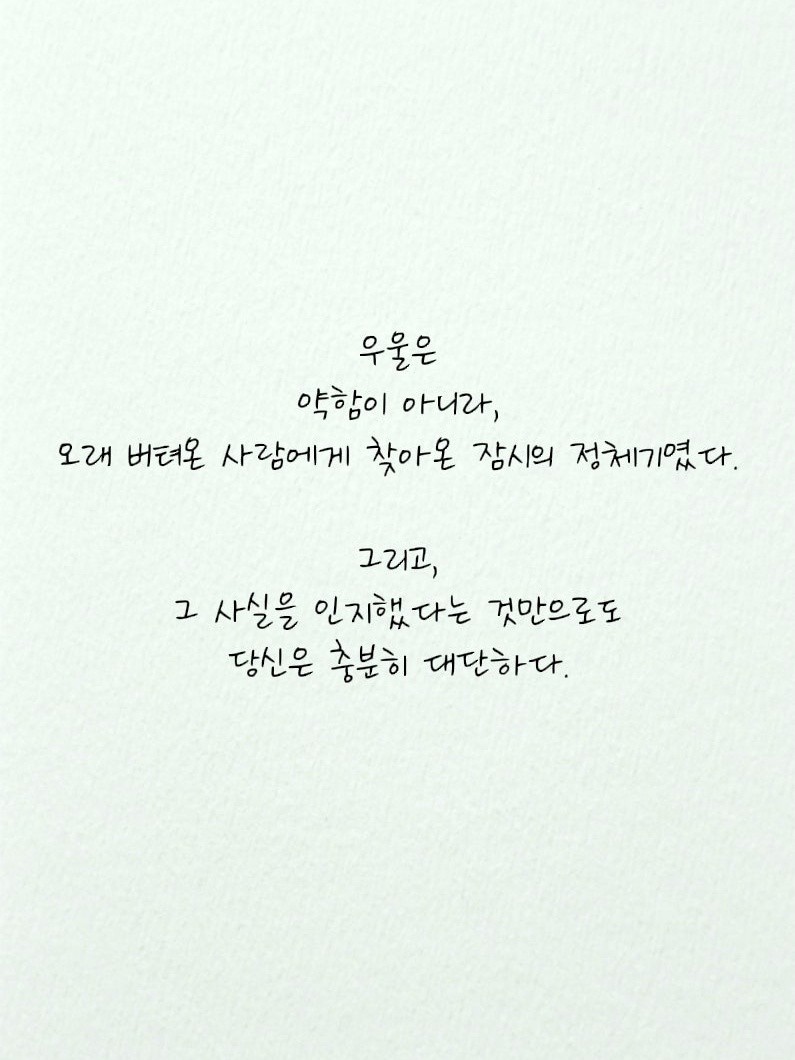 우울은
약함이 아니라,
오래 버텨온 사람에게 찾아온 잠시의 정체기였다.
그리고,
그 사실을 인지했다는 것만으로도
당신은 충분히 대단하다.